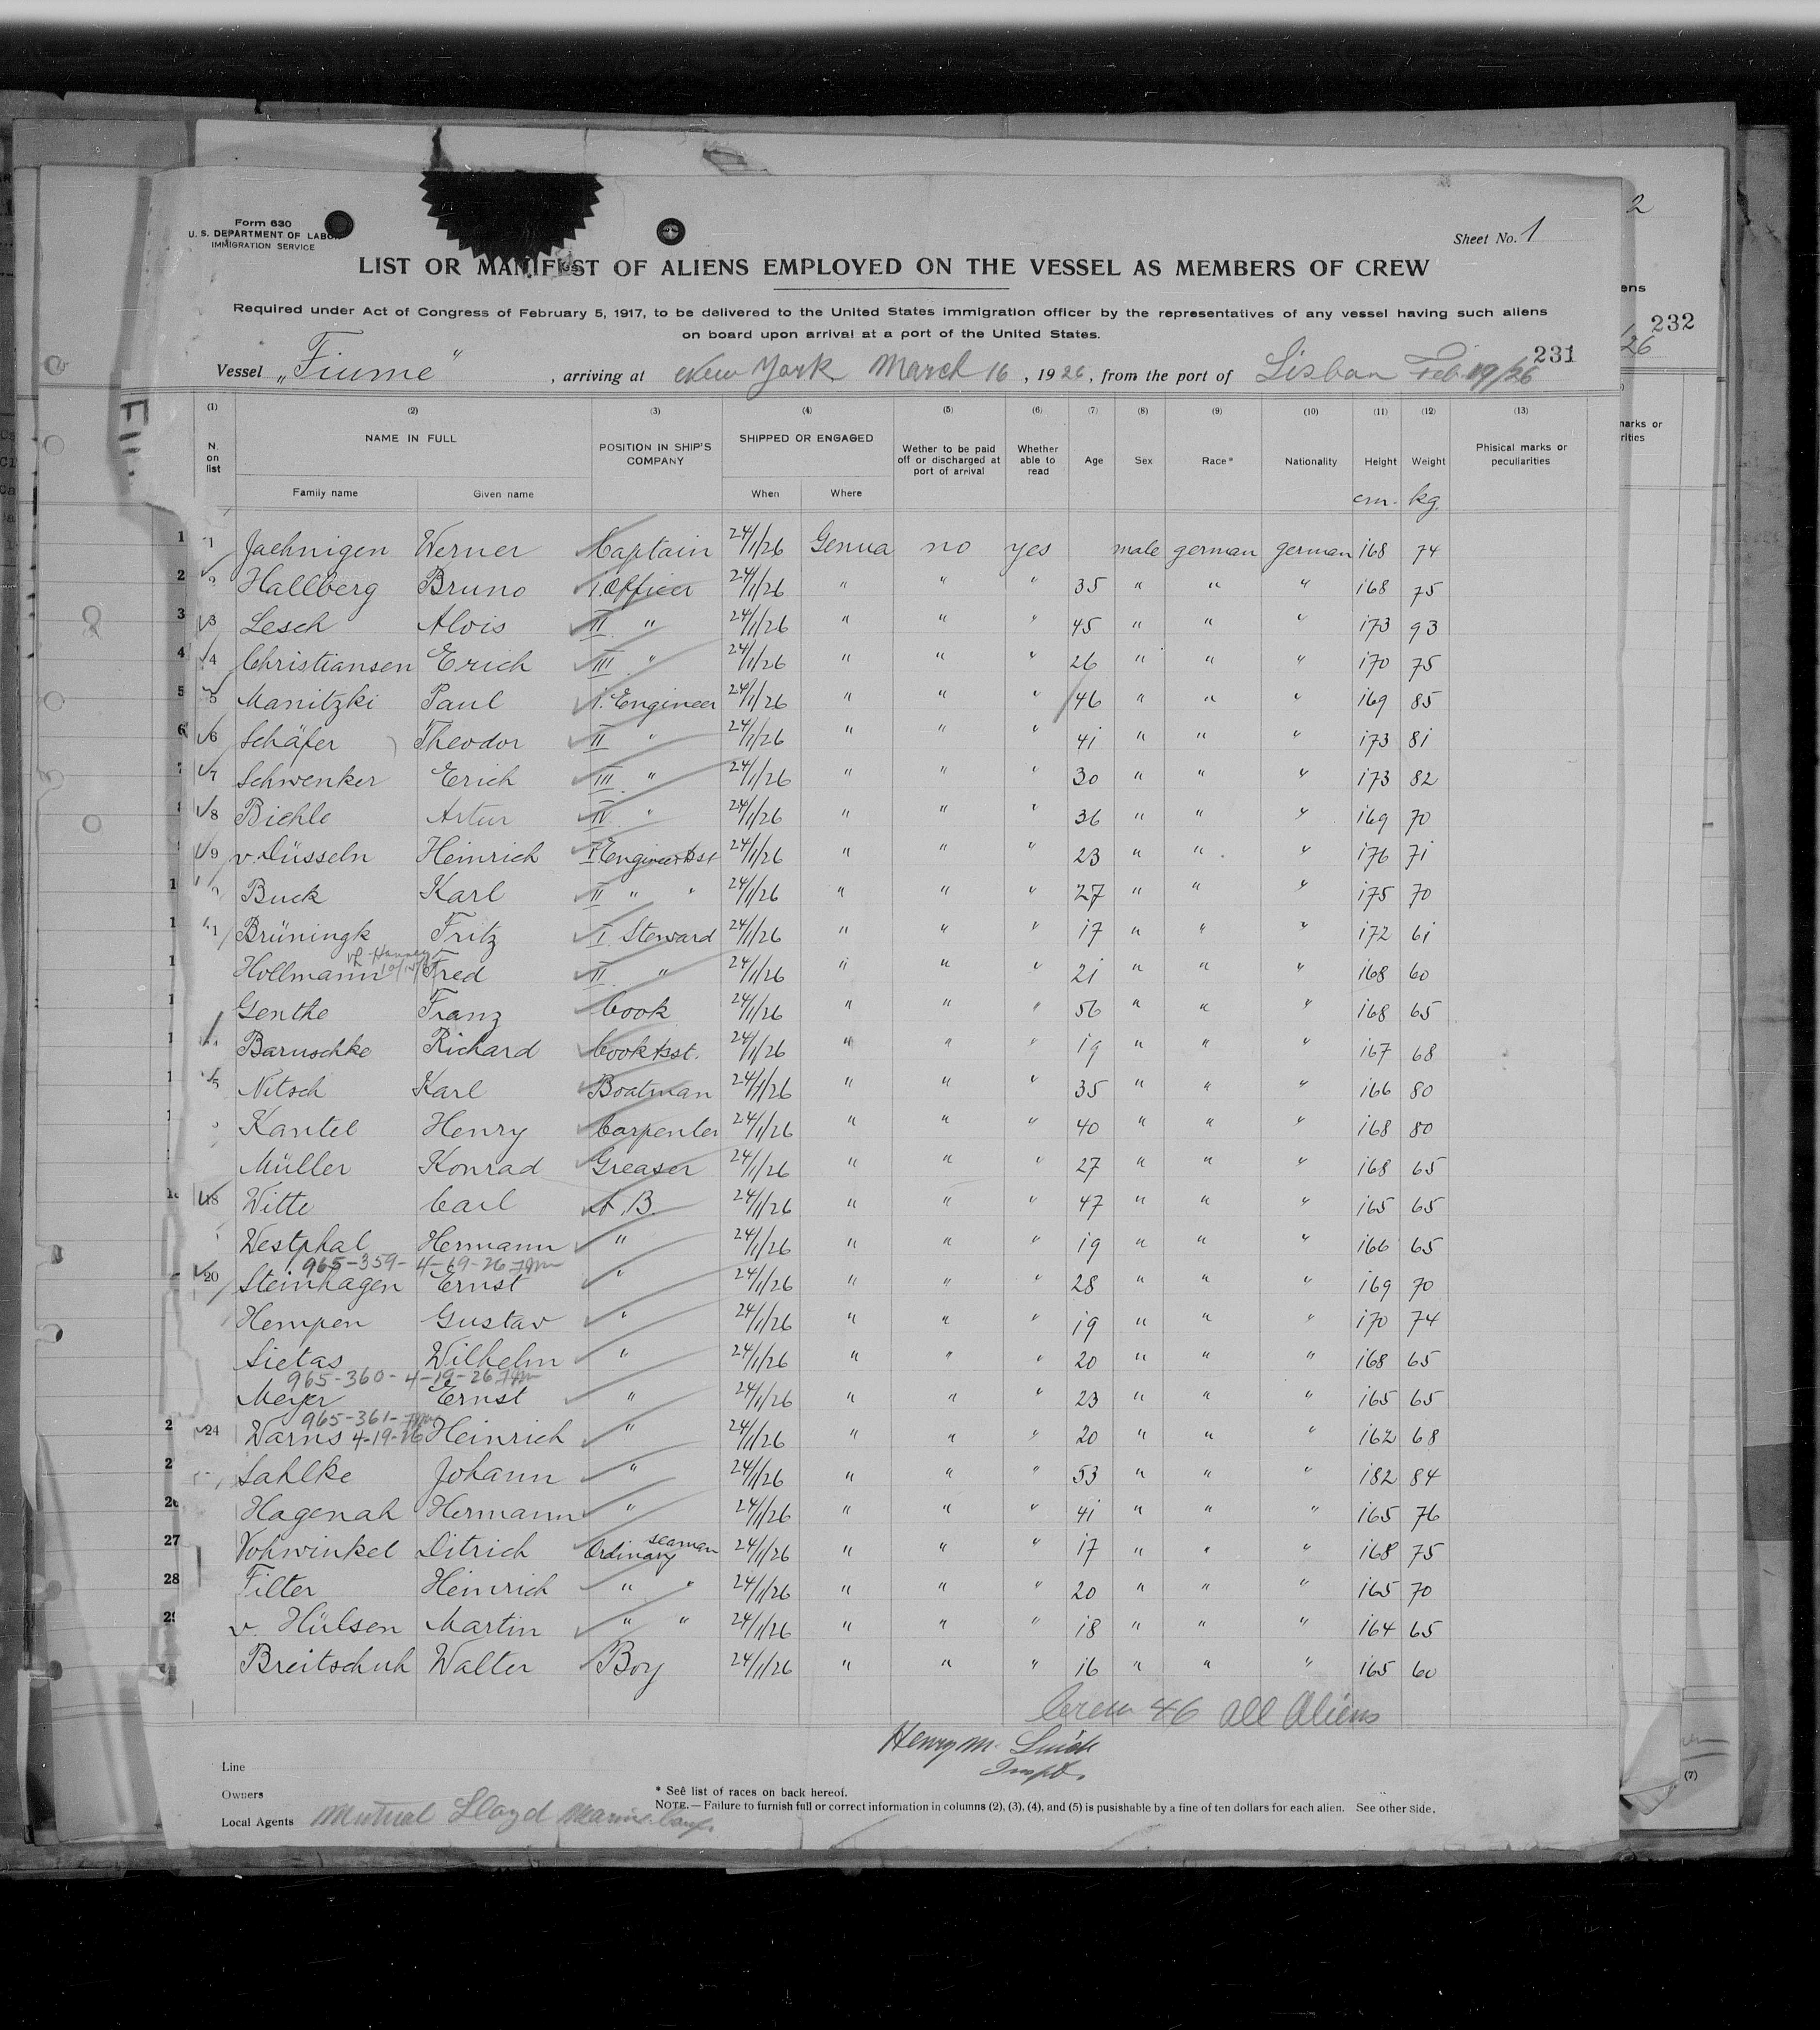 Form 630
U. S. DEPARTMENT OF LABOR
IMMIGRATION SERVICE
Sheet No. 1
2
LIST OR MANIFEST OF ALIENS EMPLOYED ON THE VESSEL AS MEMBERS OF CREW
Required under Act of Congress of February 5, 1917, to be delivered to the United States immigration officer by the representatives of any vessel having such aliens
on board upon arrival at a port of the United States.
231
232
26
Vessel „Fiume“ , arriving at New York March 16 , 1926 , from the port of Lisbon Feb. 19/26
(1) (2) (3) (4) (5) (6) (7) (8) (9) (10) (11) (12) (13)
N. on list NAME IN FULL POSITION IN SHIP'S COMPANY SHIPPED OR ENGAGED Wether to be paid off or discharged at port of arrival Whether able to read Age Sex Race* Nationality Height Weight Phisical marks or peculiarities
Family name Given name When Where cm. kg.
1 1 Jaehnigen Werner Captain 24/1/26 Genua no yes male german german 168 74
2 2 Hallberg Bruno I. Officer 24/1/26 " " " 35 " " " 168 75
3 3 Lesch Alois II " 24/1/26 " " " 45 " " " 173 93
4 4 Christiansen Erich III " 24/1/26 " " " 26 " " " 170 75
5 5 Manitzki Paul I. Engineer 24/1/26 " " " 46 " " " 169 85
6 6 Schäfer Theodor II " 24/1/26 " " " 41 " " " 173 81
7 7 Schwenker Erich III " 24/1/26 " " " 30 " " " 173 82
8 Biehle Artur IV " 24/1/26 " " " 36 " " " 169 70
9 v. Düsseln Heinrich I Engineer Asst 24/1/26 " " " 23 " " " 176 71
Buck Karl II " " 24/1/26 " " " 27 " " " 175 70
Brüningk Fritz I. Steward 24/1/26 " " " 17 " " " 172 61
Hollmann Fred II " 24/1/26 " " " 21 " " " 168 60
Genthe Franz Cook 24/1/26 " " " 56 " " " 168 65
Baruschke Richard Cook Asst. 24/1/26 " " " 19 " " " 167 68
Nitsch Karl Boatman 24/1/26 " " " 35 " " " 166 80
Kantel Henry Carpenter 24/1/26 " " " 40 " " " 168 80
Müller Konrad Greaser 24/1/26 " " " 27 " " " 168 65
18 Witte Carl A. B. 24/1/26 " " " 47 " " " 165 65
Westphal Hermann " 24/1/26 " " " 19 " " " 166 65
965-359- 4-19-26
20 Steinhagen Ernst " 24/1/26 " " " 28 " " " 169 70
Hempen Gustav " 24/1/26 " " " 19 " " " 170 74
Sietas Wilhelm " 24/1/26 " " " 20 " " " 168 65
965-360- 4-19-26
Meyer Ernst " 24/1/26 " " " 23 " " " 165 65
965-361-
24 Warns 4-19-26 Heinrich " 24/1/26 " " " 20 " " " 162 68
Sahlke Johann " 24/1/26 " " " 53 " " " 182 84
26 Hagenah Hermann " 24/1/26 " " " 41 " " " 165 76
27 Vohwinkel Ditrich Ordinary seaman 24/1/26 " " " 17 " " " 168 75
28 Filter Heinrich " " 24/1/26 " " " 20 " " " 165 70
29 v. Hülsen Martin " " 24/1/26 " " " 18 " " " 164 65
Breitschuh Walter Boy 24/1/26 " " " 16 " " " 165 60
Crew 46 all Aliens
Henry M.
Inspt.
Line
Owners
* See list of races on back hereof.
NOTE.— Failure to furnish full or correct information in columns (2), (3), (4), and (5) is pusishable by a fine of ten dollars for each alien. See other side.
Local Agents Mutual Lloyd Marine Corp.
(7)